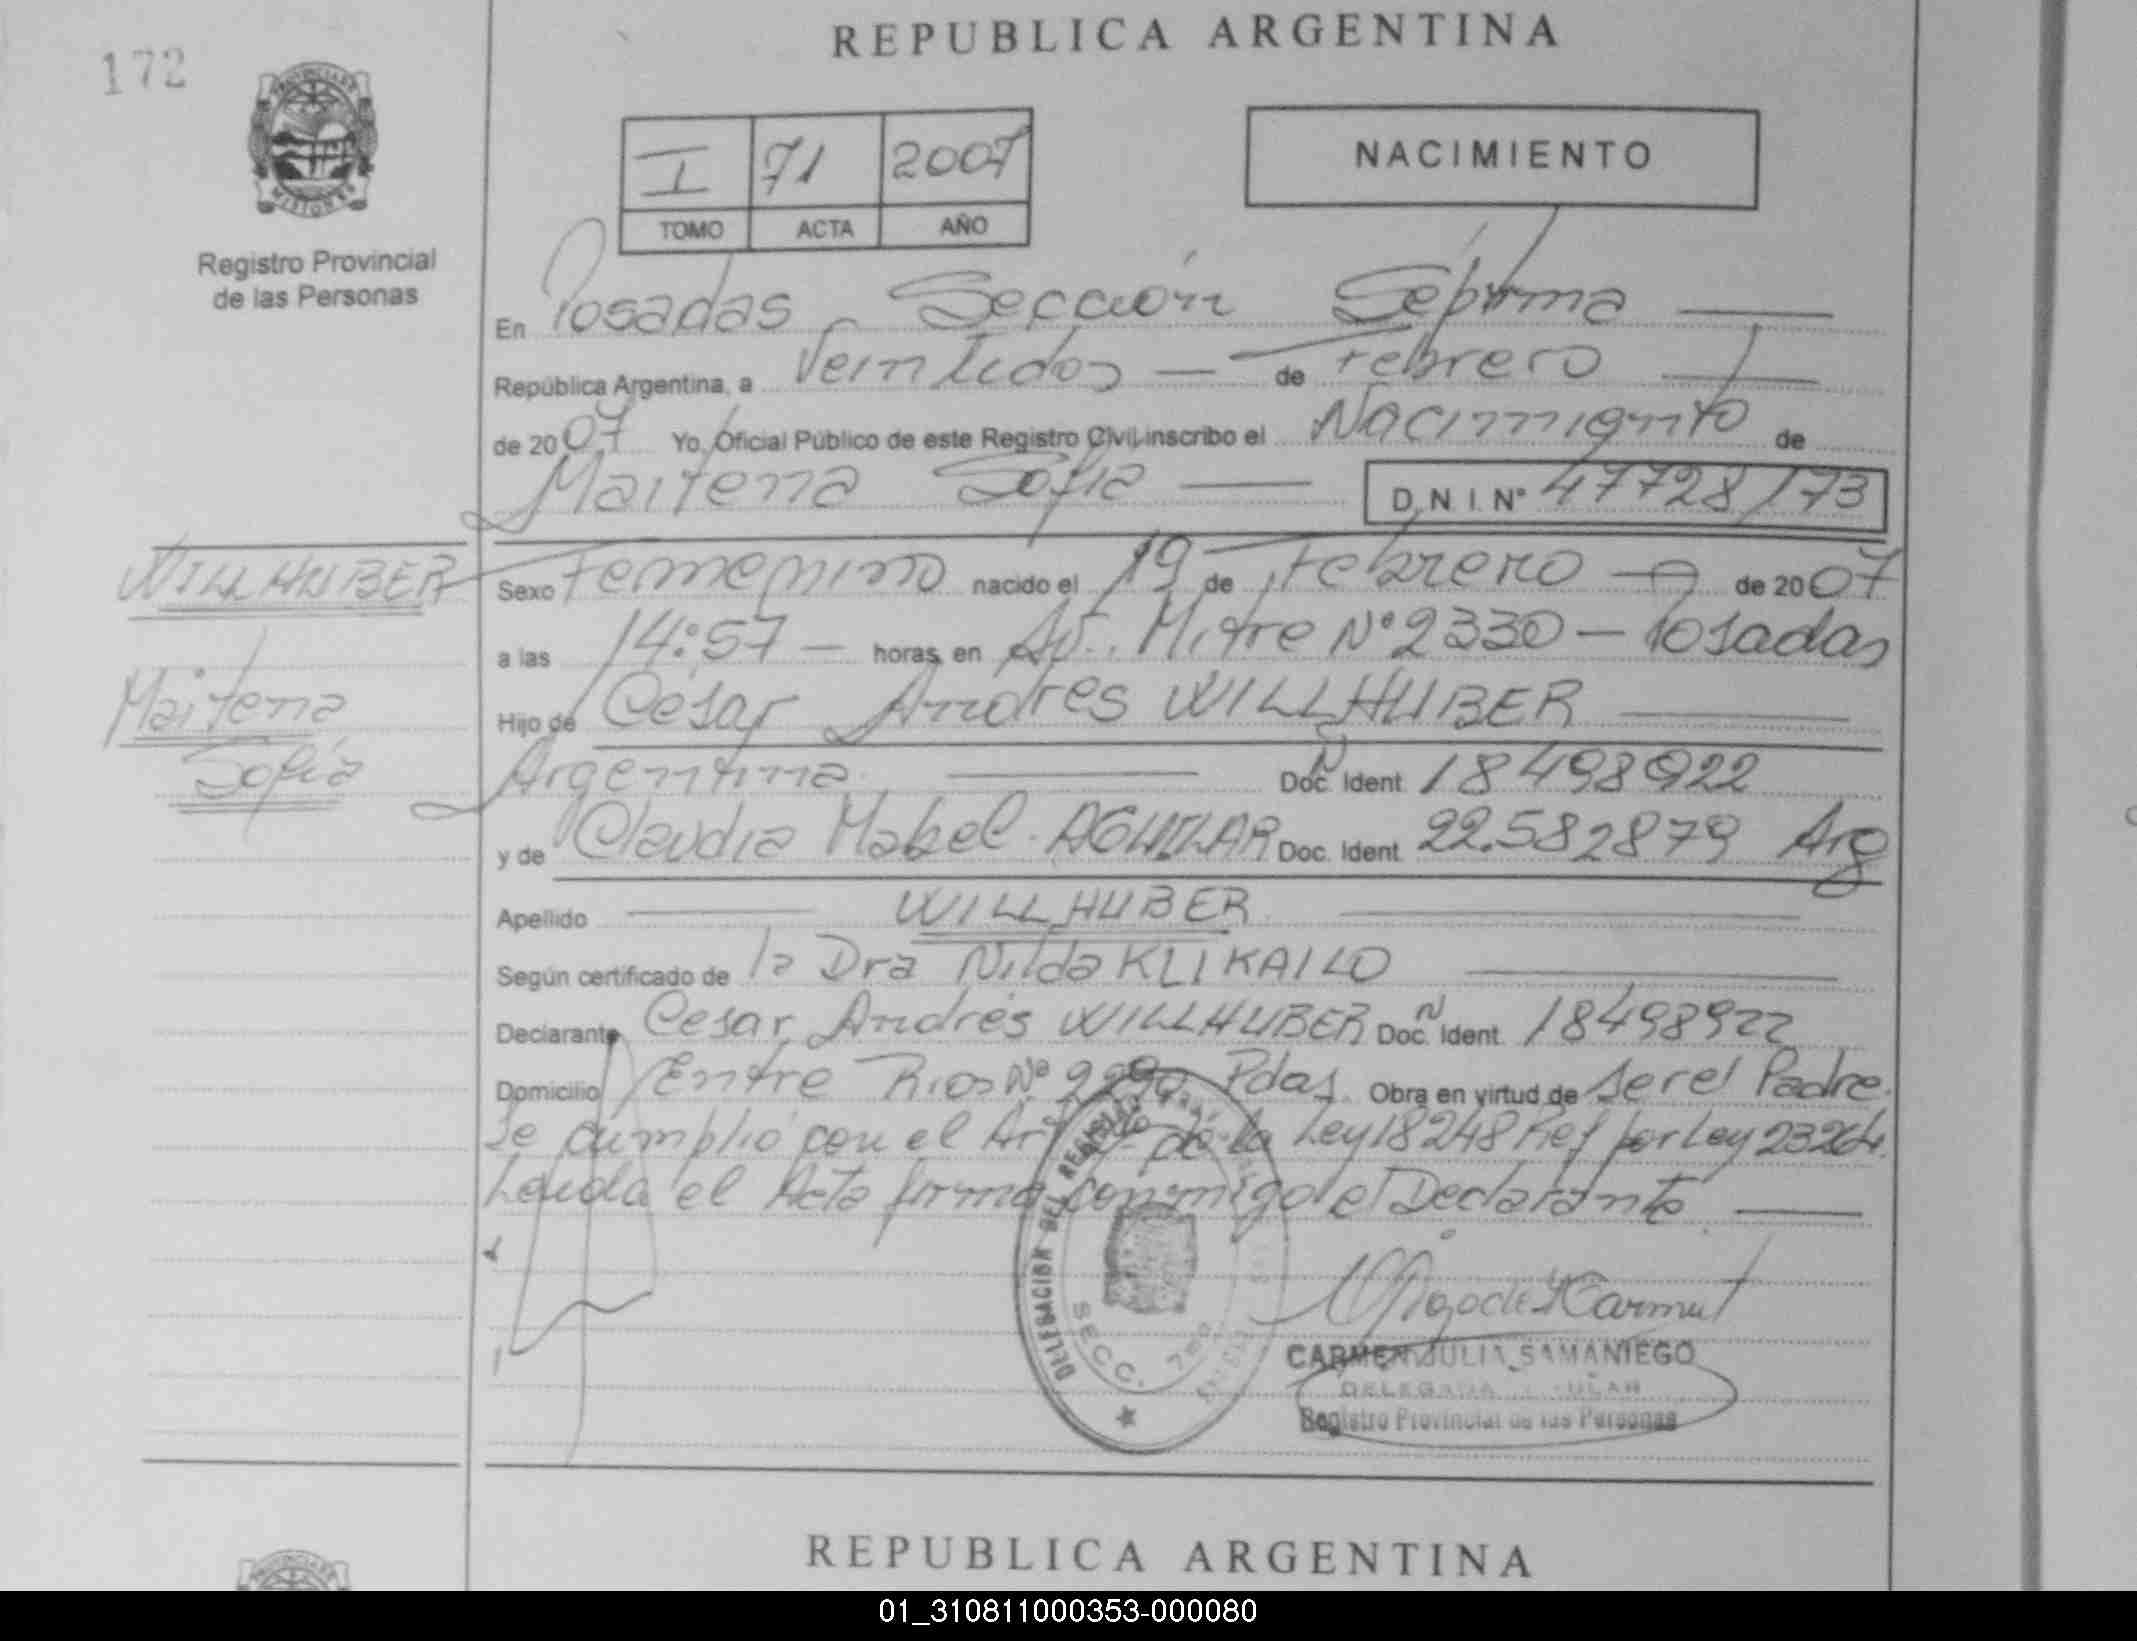 REPUBLICA ARGENTINA
172
PROVINCIA DE
MISIONES
Registro Provincial
de las Personas
I 71 2007
TOMO ACTA AÑO
NACIMIENTO
En Posadas Sección Séptima
República Argentina, a Veintidos de Febrero
de 2007 Yo, Oficial Público de este Registro Civil, inscribo el Nacimiento de
Maitena Sofia D.N.I. Nº 47728173
WILLHUBER
Maitena
Sofía
Sexo Femenino nacido el 19 de Febrero de 2007
a las 14:57 horas, en Av. Mitre Nº 2330 - Posadas
Hijo de César Andrés WILLHUBER
Argentina Doc. Ident. 18498922
y de Claudia Mabel AGUILAR Doc. Ident. 22.582879 Arg
Apellido WILLHUBER
Según certificado de la Dra Nilda KLIKAILO
Declarante Cesar Andrés WILLHUBER Doc. Ident. 18498922
Domicilio Entre Rios Nº Pdas. Obra en virtud de ser el Padre.
Se cumplió con el Art de la Ley 18248 Ref por Ley 23264.
Leída el Acta firma conmigo el Declarante
DELEGACION DEL REGISTRO
SECC. 7ma
CARMEN JULIA SAMANIEGO
DELEGADA
Registro Provincial de las Personas
REPUBLICA ARGENTINA
01_310811000353-000080